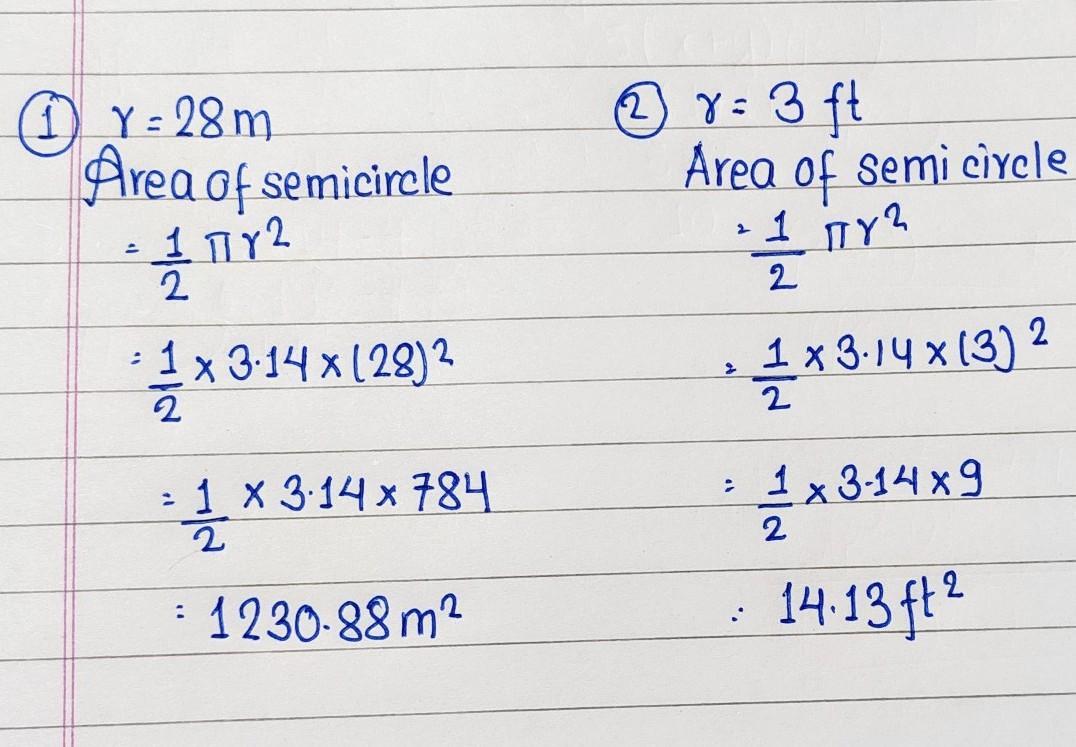 ① r = 28 m
Area of semicircle
= 1/2 πr²
= 1/2 × 3.14 × (28)²
= 1/2 × 3.14 × 784
= 1230.88 m²
② r = 3 ft
Area of semi circle
= 1/2 πr²
= 1/2 × 3.14 × (3)²
= 1/2 × 3.14 × 9
= 14.13 ft²